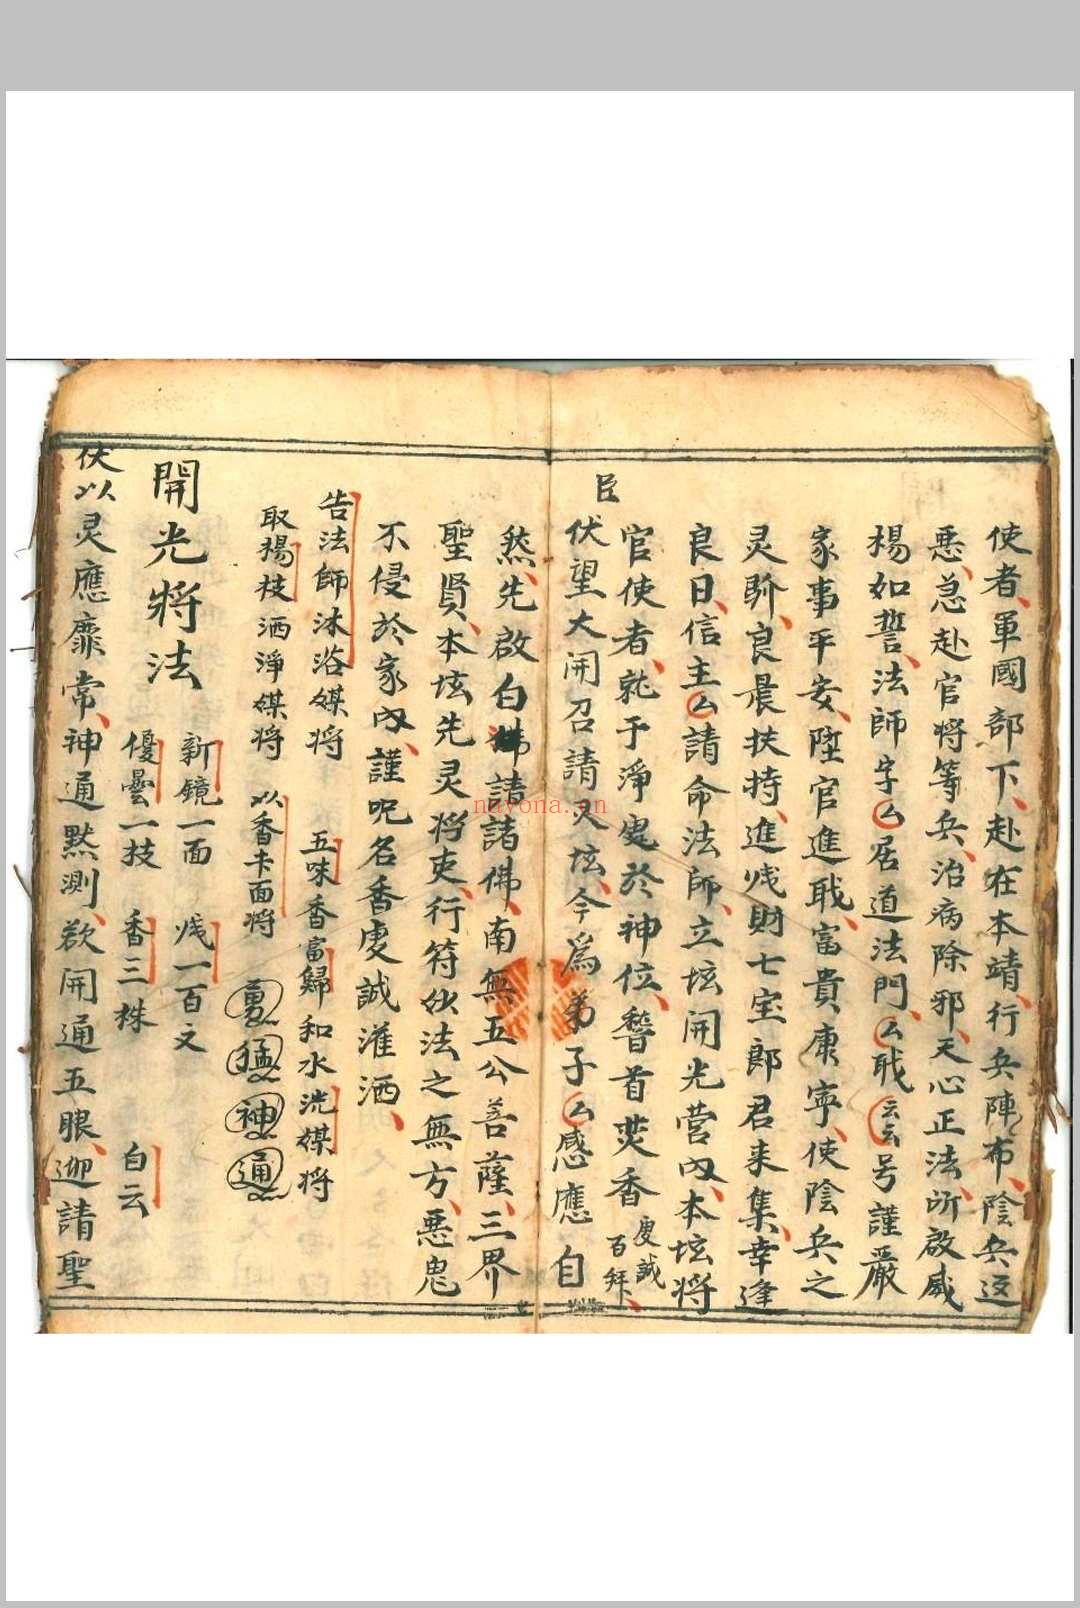 使者、軍國部下、赴在本靖、行兵陣布、陰兵返
悪、急赴官将等兵、治病除邪、天心正法、所啟威
楊如誓、法師字厶居道法門、厶戢云云号謹嚴
家事平安、陞官進戢、富貴康寧、使陰兵之
灵馿、良晨扶持、進㳀財七宝郎君来集、幸逢
良日、信主厶請命法師、立坛開光营内、本坛将
官使者、就于淨処於神位、稽首焚香 虔誠百拜、
臣
伏望大開召請 坛、今為弟子厶感應 自
然、先啟白 請諸佛、南無五公菩薩、三界
聖賢、本坛先灵将吏、行符 法之無方、悪鬼
不侵於家内、謹呪名香虔誠灌洒、
告法師沐浴媒将 五味香富歸和水洗媒将
取楊枝洒淨媒将 以香卡面将 勇猛神通
新鏡一面 㳀一百文
開光将法
優曇一技 香三株 白云
伏以灵應靡常、神通黙測、欲開通五眼、迎請聖
nayona.cn